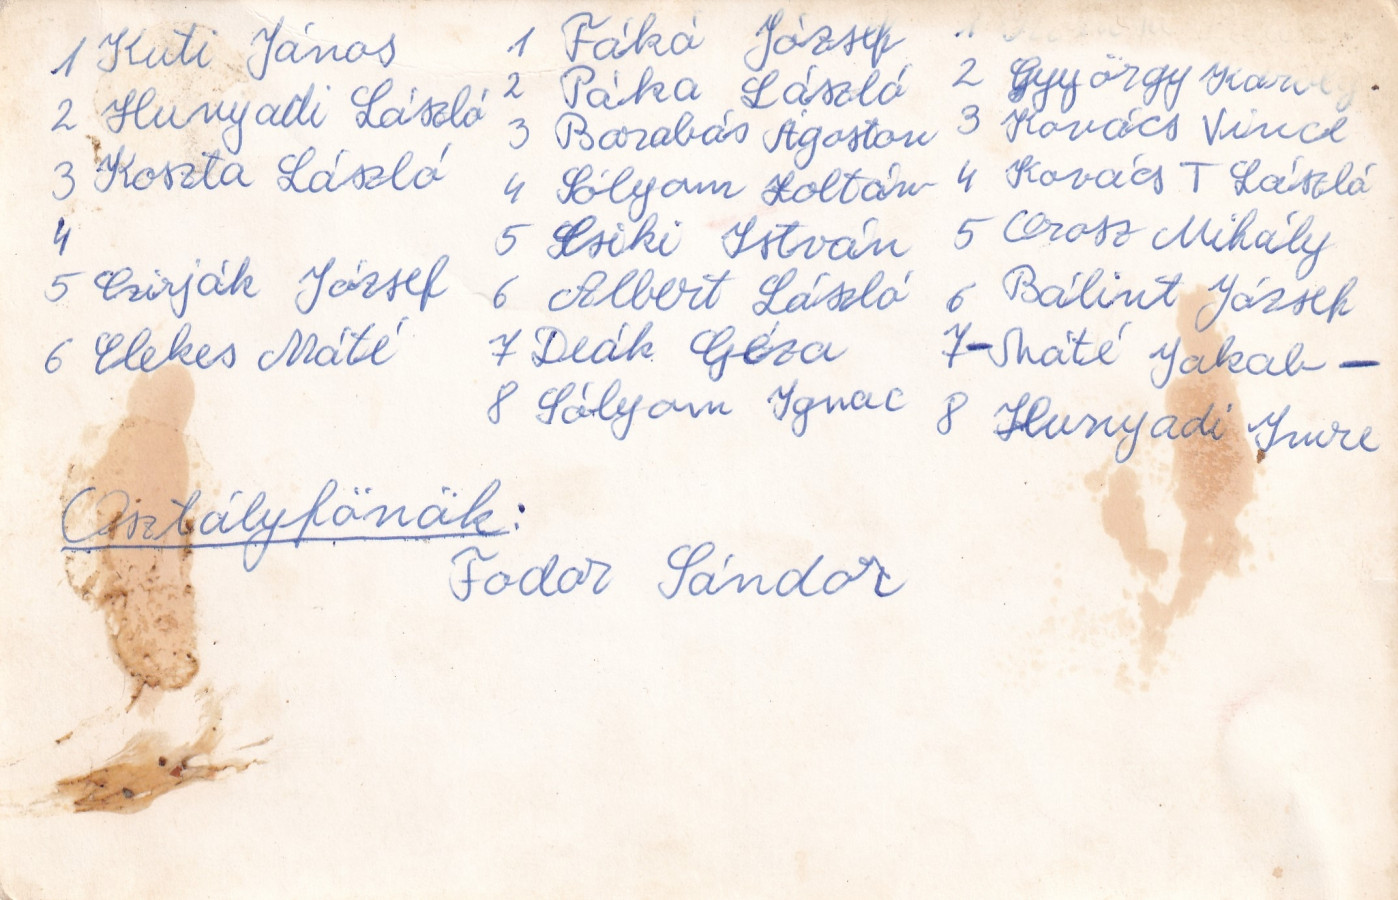 1 Kuti János
2 Hunyadi László
3 Koszta László
4
5 Czirják József
6 Elekes Máté
1 Fákó József
2 Páka László
3 Barabás Ágoston
4 Sólyom Zoltán
5 Csiki István
6 Albert László
7 Deák Géza
8 Sólyom Ignac
1
2 György Károly
3 Kovács Vince
4 Kovács T László
5 Orosz Mihály
6 Bálint József
7-Máté Jakab-
8 Hunyadi Imre
Osztályfönök:
Fodor Sándor